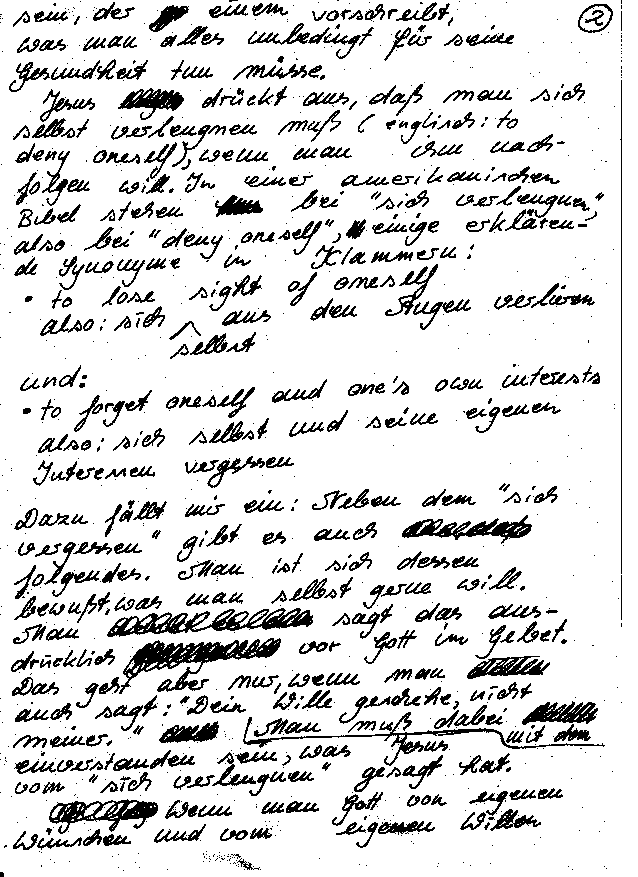 sein, der einem vorschreibt, ②
was man alles unbedingt für seine
Gesundheit tun müsse.
Jesus drückt aus, daß man sich
selbst verleugnen muß (englisch: to
deny oneself), wenn man ihm nach-
folgen will. In einer amerikanischen
Bibel stehen bei "sich verleugnen,"
also bei "deny oneself", einige erklären-
de Synonyme in Klammern:
• to lose sight of oneself
also: sich ^ aus den Augen verlieren
selbst
und:
• to forget oneself and one's own interests
also: sich selbst und seine eigenen
Interessen vergessen
Dazu fällt mir ein: Neben dem "sich
vergessen" gibt es auch
folgendes. Man ist sich dessen
bewußt, was man selbst gerne will.
Man sagt das aus-
drücklich vor Gott im Gebet.
Das geht aber nur, wenn man
auch sagt: "Dein Wille geschehe, nicht
meiner." Man muß dabei mit dem
einverstanden sein, was Jesus
vom "sich verleugnen" gesagt hat.
Wenn man Gott von eigenen
Wünschen und vom eigenen Willen